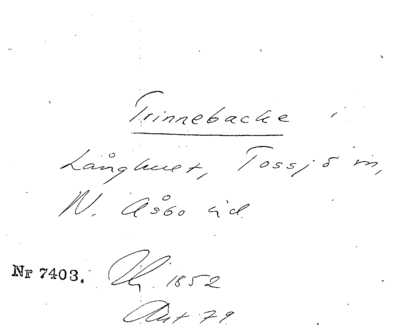 Trinnebacke
Långhult, Tossjö sn,
N. Åsbo hd
Nr 7403. 1852
Ant 79